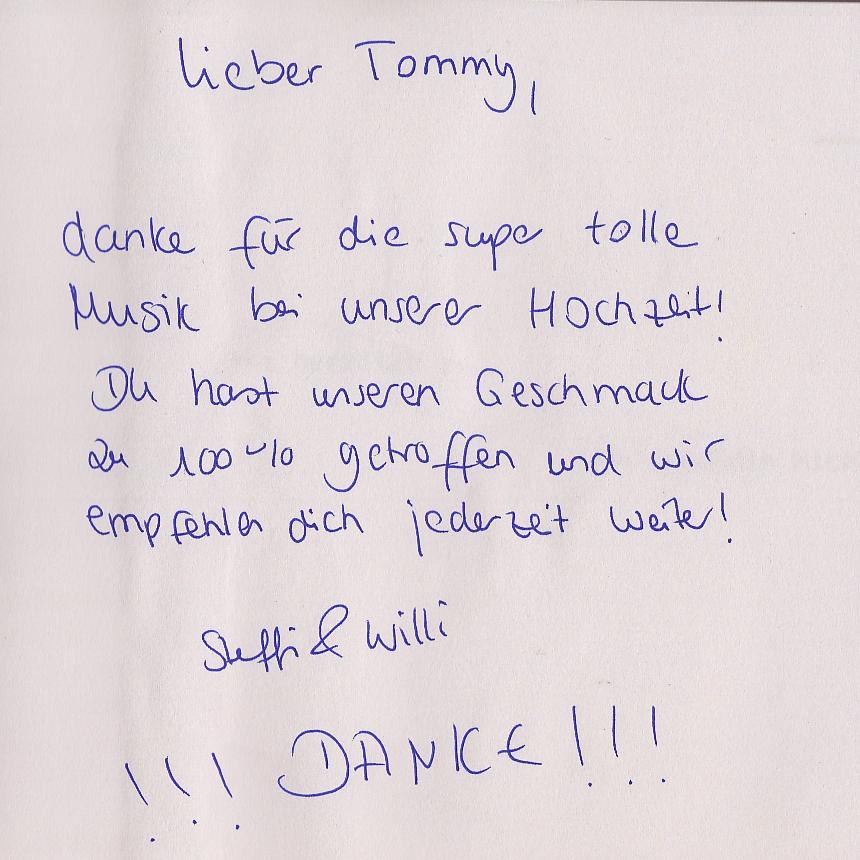 lieber Tommy,
danke für die supe tolle
Musik bei unserer Hochzeit!
Du hast unseren Geschmack
zu 100% getroffen und wir
empfehlen dich jederzeit weiter!
Steffi & Willi
!!! DANKE!!!